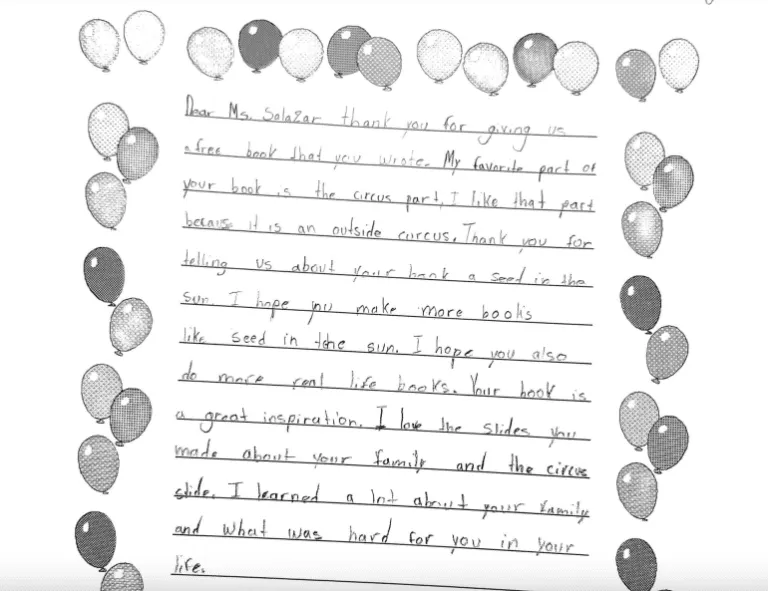 Dear Ms. Salazar thank you for giving us
a free book that you wrote. My favorite part of
your book is the circus part, I like that part
because it is an outside circus. Thank you for
telling us about your book a seed in the
sun. I hope you make more books
like seed in the sun. I hope you also
do more real life books. Your book is
a great inspiration. I love the slides you
made about your family and the circus
slide. I learned a lot about your family
and what was hard for you in your
life.